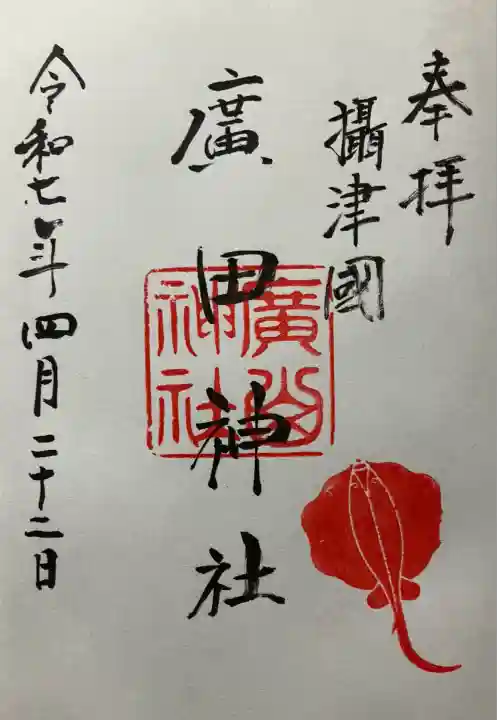 奉拝
攝津國
廣田神社
令和七年四月二十二日